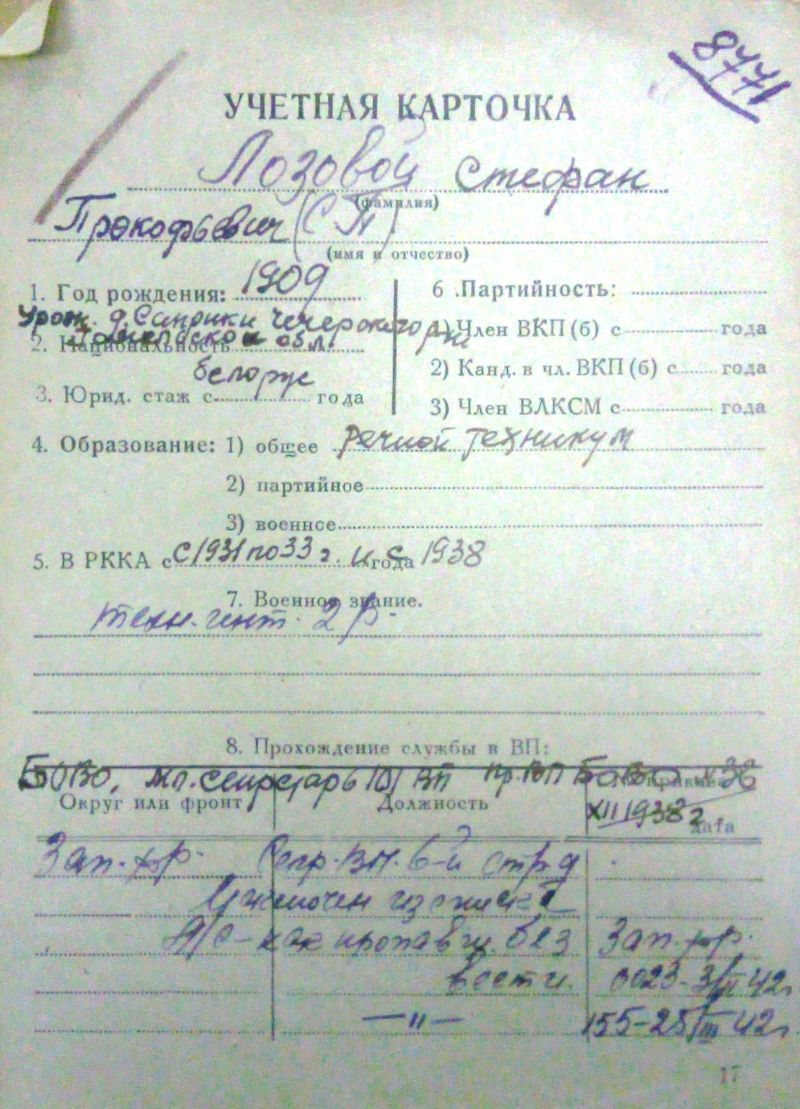 8771
УЧЕТНАЯ КАРТОЧКА
Лозовой Стефан
(фамилия)
Прокофьевич (СП)
(имя и отчество)
1. Год рождения: 1909
Урож. д. Саприки Чечерского р-на
Гомельской обл.
2. Национальность
белорус
3. Юрид. стаж с года
6 .Партийность:
1) Член ВКП(б) с года
2) Канд. в чл. ВКП(б) с года
3) Член ВЛКСМ с года
4. Образование: 1) общее речной техникум
2) партийное
3) военнсе
5. В РККА с с 1931 по 33 г. и с года 1938
7. Военное звание.
техн. инт. 2 р.
8. Прохождение службы в ВП:
БОВО, мл. секретарь ВП пр. ВП БОВО № 36
Округ или фронт Должность приказа
XII 1938 г
дата
Зап. фр. Секр. ВП. 6-й стр д
Исключен из списка
л/с - как пропавш. без Зап. фр.
вести. 0023-3/II 42г
—"— 155-25/III 42г.
17